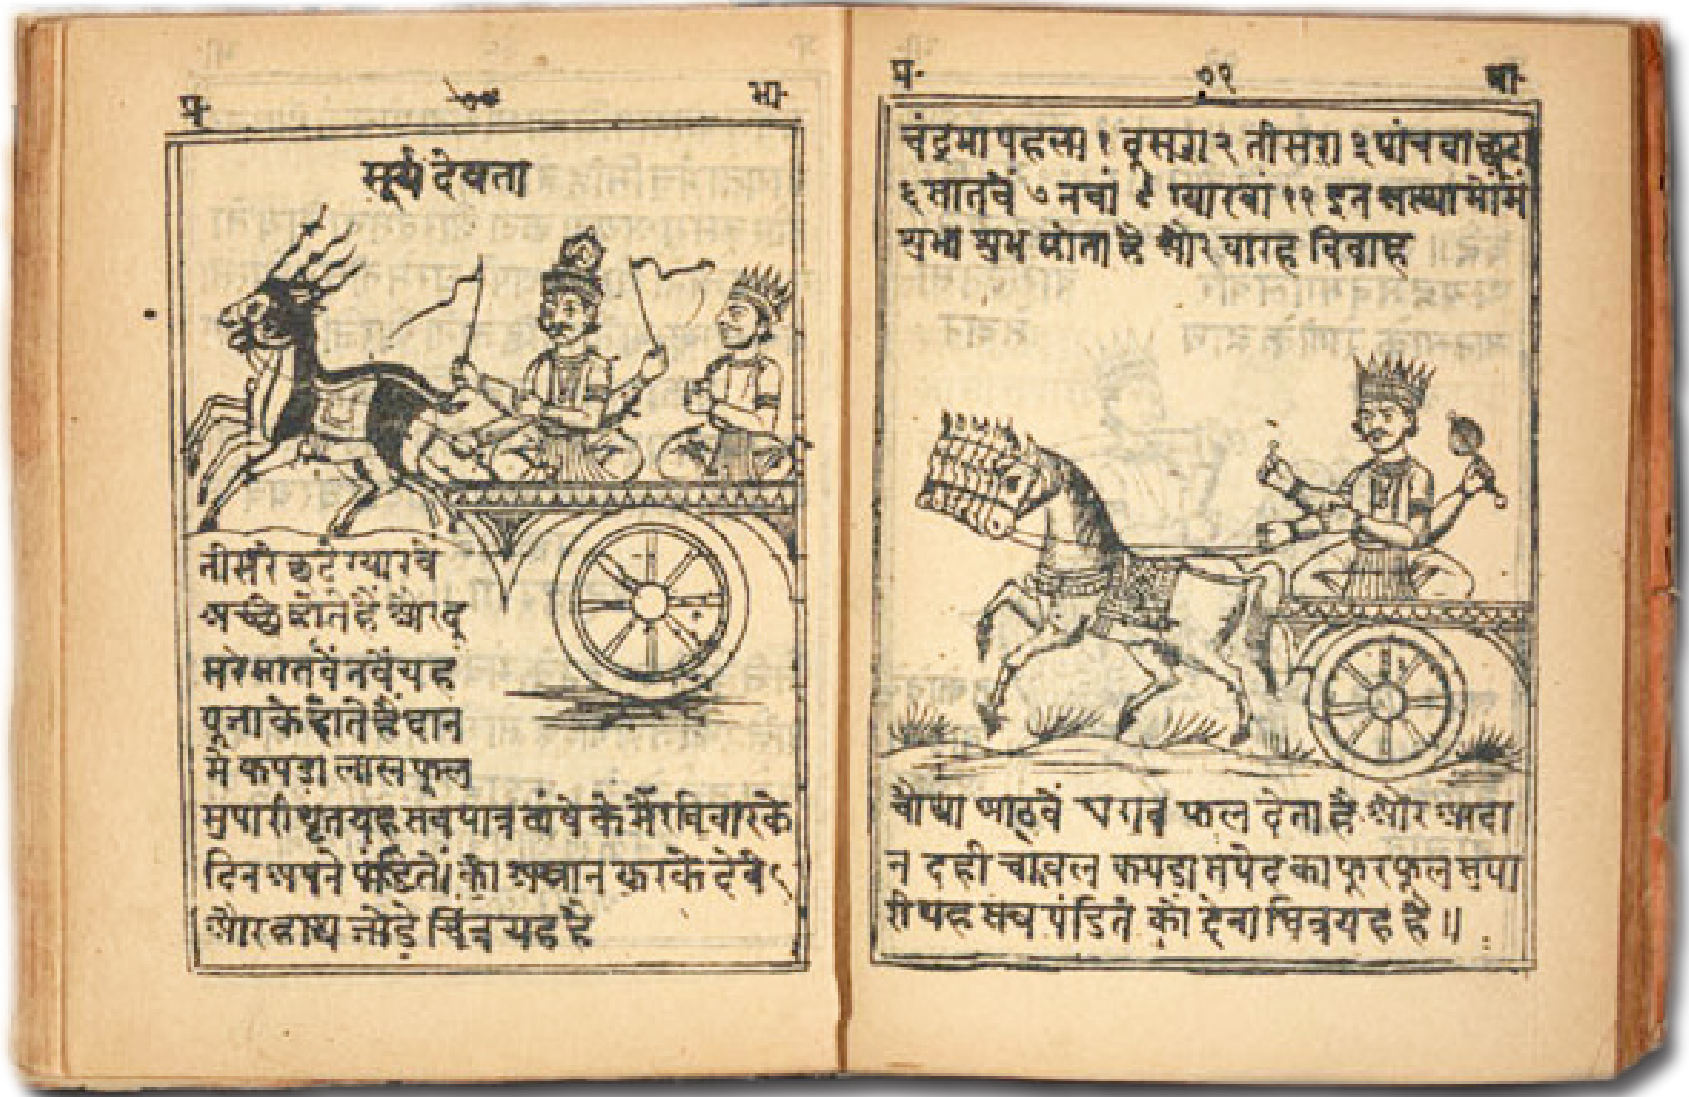 प्र॰ ७० भा॰
सूर्य देवता
तीसरे छटे ग्यारवें
अच्छे होते हैं और दू
सरे सातवें नवें यह
पूजा के होते हैं दान
में कपड़ा लाल फूल
सुपारी यह सब पात्र
दिन अपने पंडित को करके देवे
और हाथ जोड़े चित्र यह है
प्र॰ ७१ भा॰
चंद्रमा पहला १ दूसरा २ तीसरा ३ पांचवा छटा
६ सातवें ७ नवां ९ ग्यारवां ११ इन
शुभ होता है और
चौथा आठवें फल देता है और
न दही चावल कपड़ा सपेद का फूल सुपा
री यह सब पंडित को देना चित्र यह है ॥